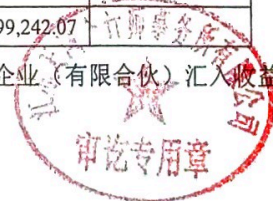 99,242.07
企业（有限合伙）汇入收益
事务所有限公司
审讫专用章